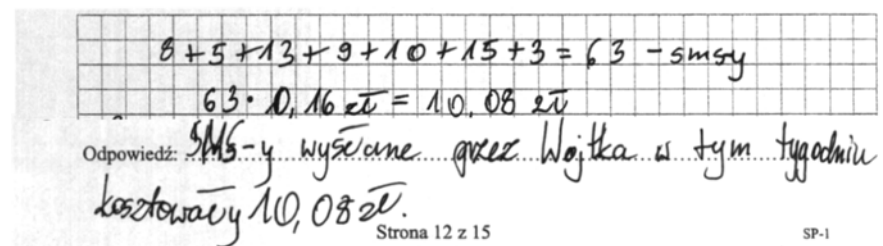 8+5+13+9+10+15+3=63 - smsy
63·0,16 zł = 10,08 zł
Odpowiedź: SMS-y wysłane przez Wojtka w tym tygodniu
kosztowały 10,08 zł.
Strona 12 z 15
SP-1